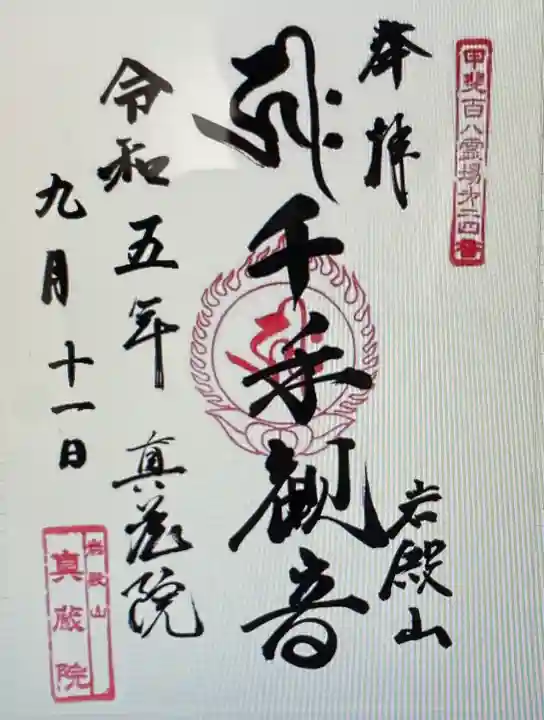 甲斐百八霊場第二四番
奉拝
岩殿山
千手観音
令和五年 真蔵院
九月十一日
岩殿山
真蔵院